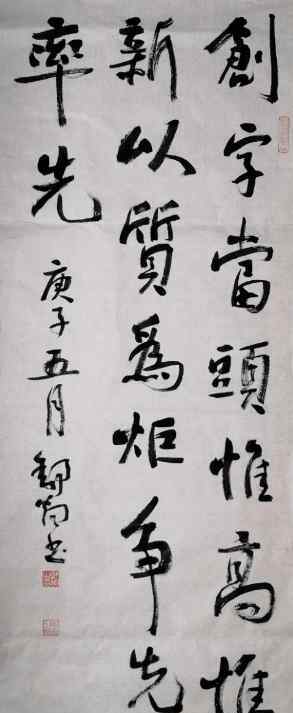 創字當頭惟高惟
新以質為炬争先
率先
庚子五月
書